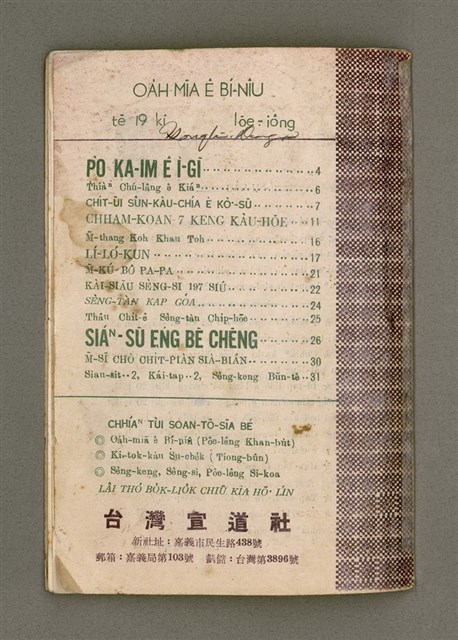 OA̍H-MĪA Ê BÍ-NÎU
tē 19 kî lōe-iông
PÒ KA-IM Ê Ì-GĪ 4
Thiàⁿ Chú-lâng ê Kiáⁿ 6
CHI̍T-ÙI SÛN-KÀU-CHÍA Ê KÒ͘-SŪ 7
CHHAM-KOAN 7 KENG KÀU-HŌE 11
M̄-thang Koh Khau Toh 16
LÍ-LÓ-KUN 17
M̄-KÚ-BÓ PA-PA 21
KÀI-SIĀU SÈNG-SI 197 SIÚ 22
SÈNG-TÀN KAP GÓA 24
Thâu Chi̍t-ê Sèng-tàn Chi̍p-hōe 25
SIÁⁿ-SŪ ENG BĒ CHÊNG 26
M̄-SĪ CHÒ CHI̍T-PIÀN SIÀ-BIÁN 30
Siau-sit 2, Kái-tap 2, Sèng-keng Būn-tê 31
CHHÍAⁿ TÙI SOAN-TŌ-SĪA BÉ
◎ Oa̍h-miā ê Bí-niû (Pôe-lêng Khan-bu̍t)
◎ Ki-tok-kàu Su-chek (Tiong-bûn)
◎ Sèng-keng, Sèng-si, Pôe-lêng Si-koa
LÂI THÓ BO̍K-LIO̍K CHIŪ KÌA HŌ͘ LÍN
台灣宣道社
新社址：嘉義市民生路438號
郵箱：嘉義局第103號 劃儲：台灣第3896號